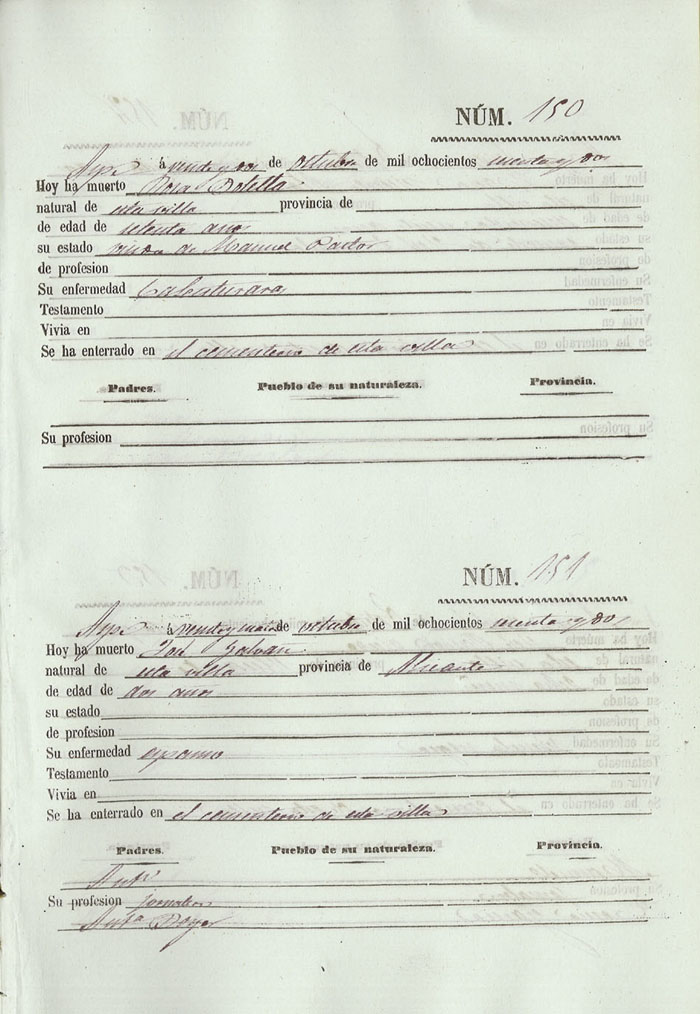 NÚM. 150
Aspe á veinte y dos de octubre de mil ochocientos sesenta y dos
Hoy ha muerto Rosa Botella
natural de esta villa provincia de
de edad de setenta años
su estado viuda de Manuel Pastor
de profesion
Su enfermedad
Testamento
Vivia en
Se ha enterrado en el cementerio de esta villa
Padres. Pueblo de su naturaleza. Provincia.
Su profesion
NÚM. 151
Aspe á de octubre de mil ochocientos sesenta y dos
Hoy ha muerto José Galvan
natural de esta villa provincia de Alicante
de edad de dos años
su estado
de profesion
Su enfermedad espasmo
Testamento
Vivia en
Se ha enterrado en el cementerio de esta villa
Padres. Pueblo de su naturaleza. Provincia.
Antº
Su profesion jornalero
Antª